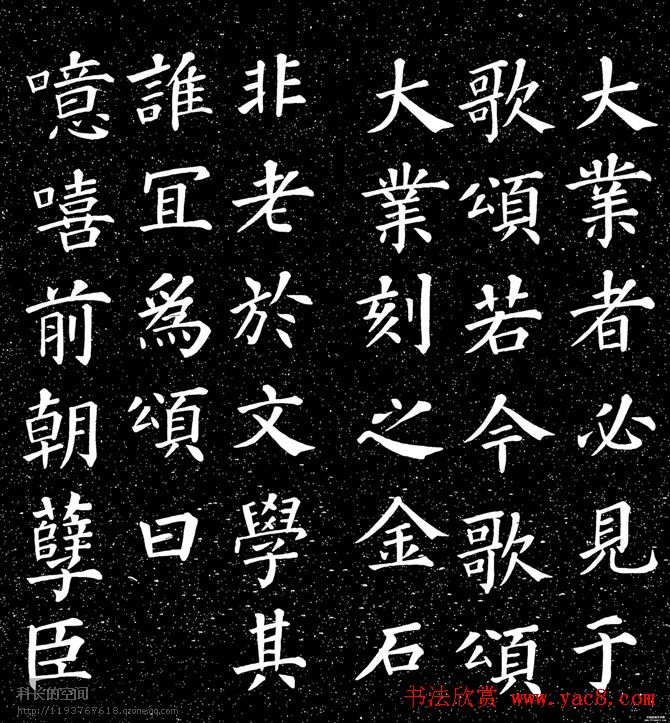 大業者必見于
歌頌若今歌頌
大業刻之金石
非老於文學其
誰宜爲頌曰
噫嘻前朝孽臣
科长的空间
http://1193767618.qzone.qq.com
书法欣赏 www.yac8.com